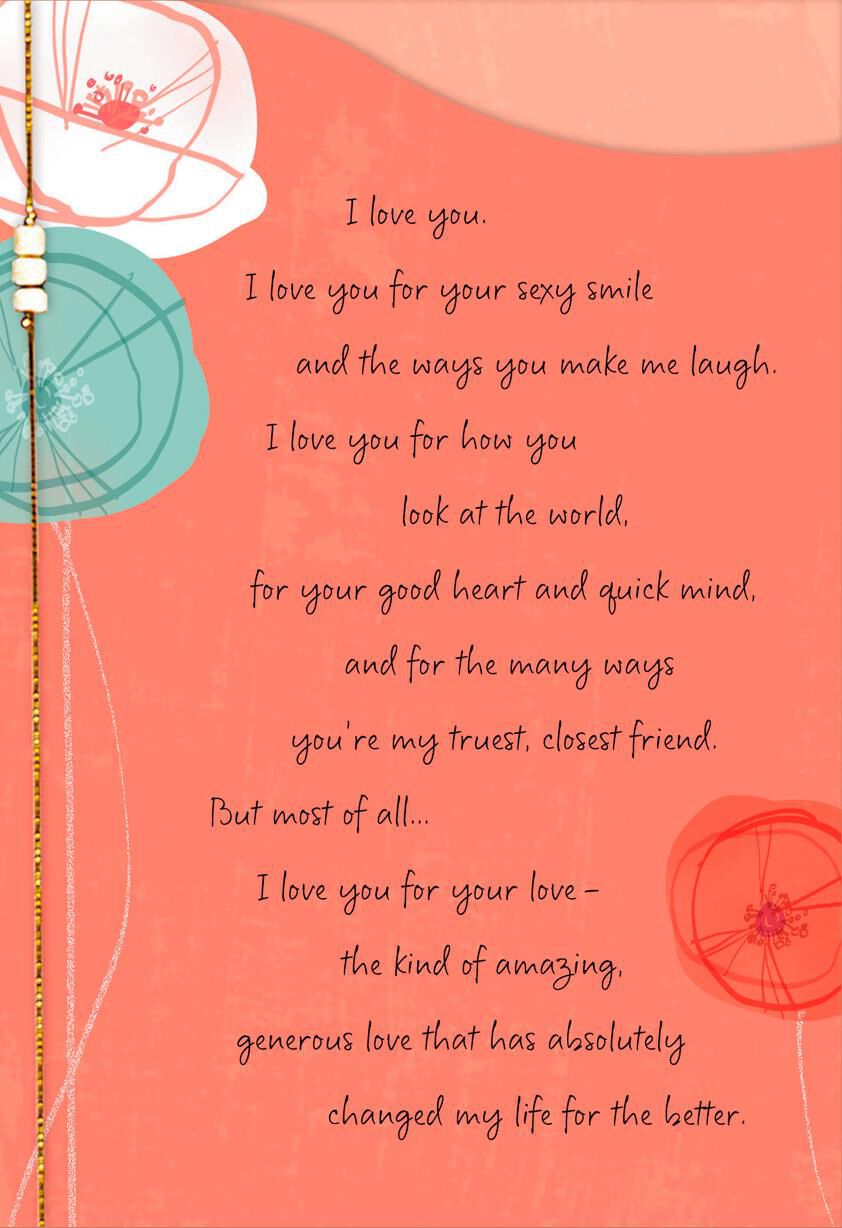 I love you.
I love you for your sexy smile
and the ways you make me laugh.
I love you for how you
look at the world,
for your good heart and quick mind,
and for the many ways
you're my truest, closest friend.
But most of all...
I love you for your love –
the kind of amazing,
generous love that has absolutely
changed my life for the better.